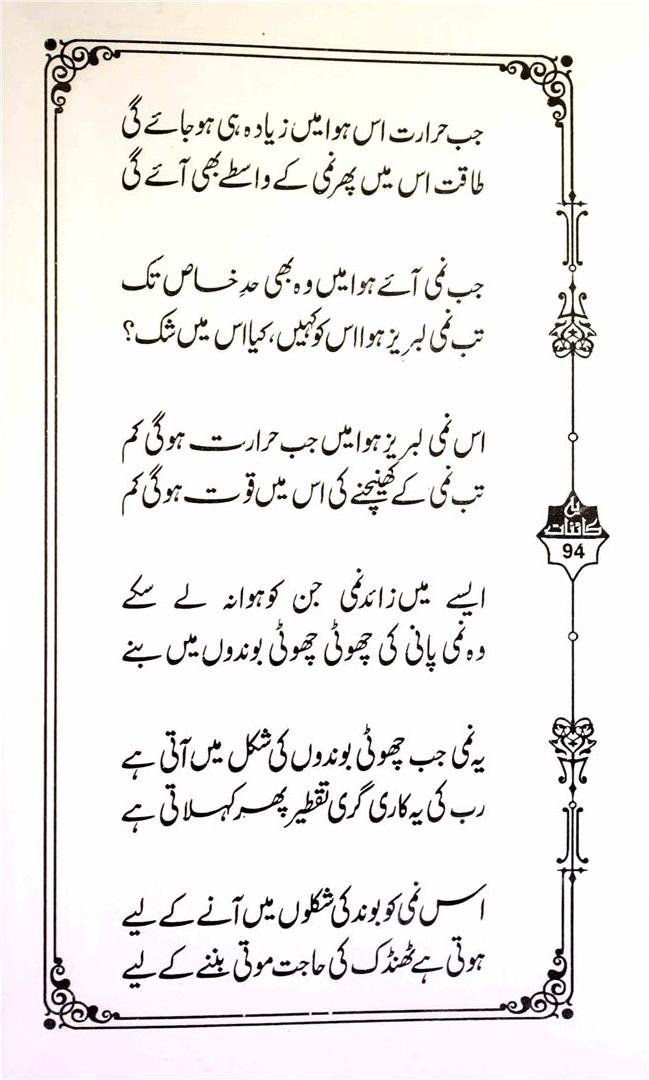 جب حرارت اس ہوا میں زیادہ ہی ہو جائے گی
طاقت اس میں پھر نمی کے واسطے بھی آئے گی
جب نمی آئے ہوا میں وہ بھی حدِ خاص تک
تب نمی لبریز ہوا اس کو کہیں، کیا اس میں شک؟
اس نمی لبریز ہوا میں جب حرارت ہوگی کم
تب نمی کے کھینچنے کی اس میں قوت ہوگی کم
ایسے میں زائد نمی جن کو ہوا نہ لے سکے
وہ نمی پانی کی چھوٹی چھوٹی بوندوں میں بنے
یہ نمی جب چھوٹی بوندوں کی شکل میں آتی ہے
رب کی یہ کاری گری تقطیر پھر کہلاتی ہے
اس نمی کو بوند کی شکلوں میں آنے کے لیے
ہوتی ہے ٹھنڈک کی حاجت موتی بننے کے لیے
یہ
کائنات
94